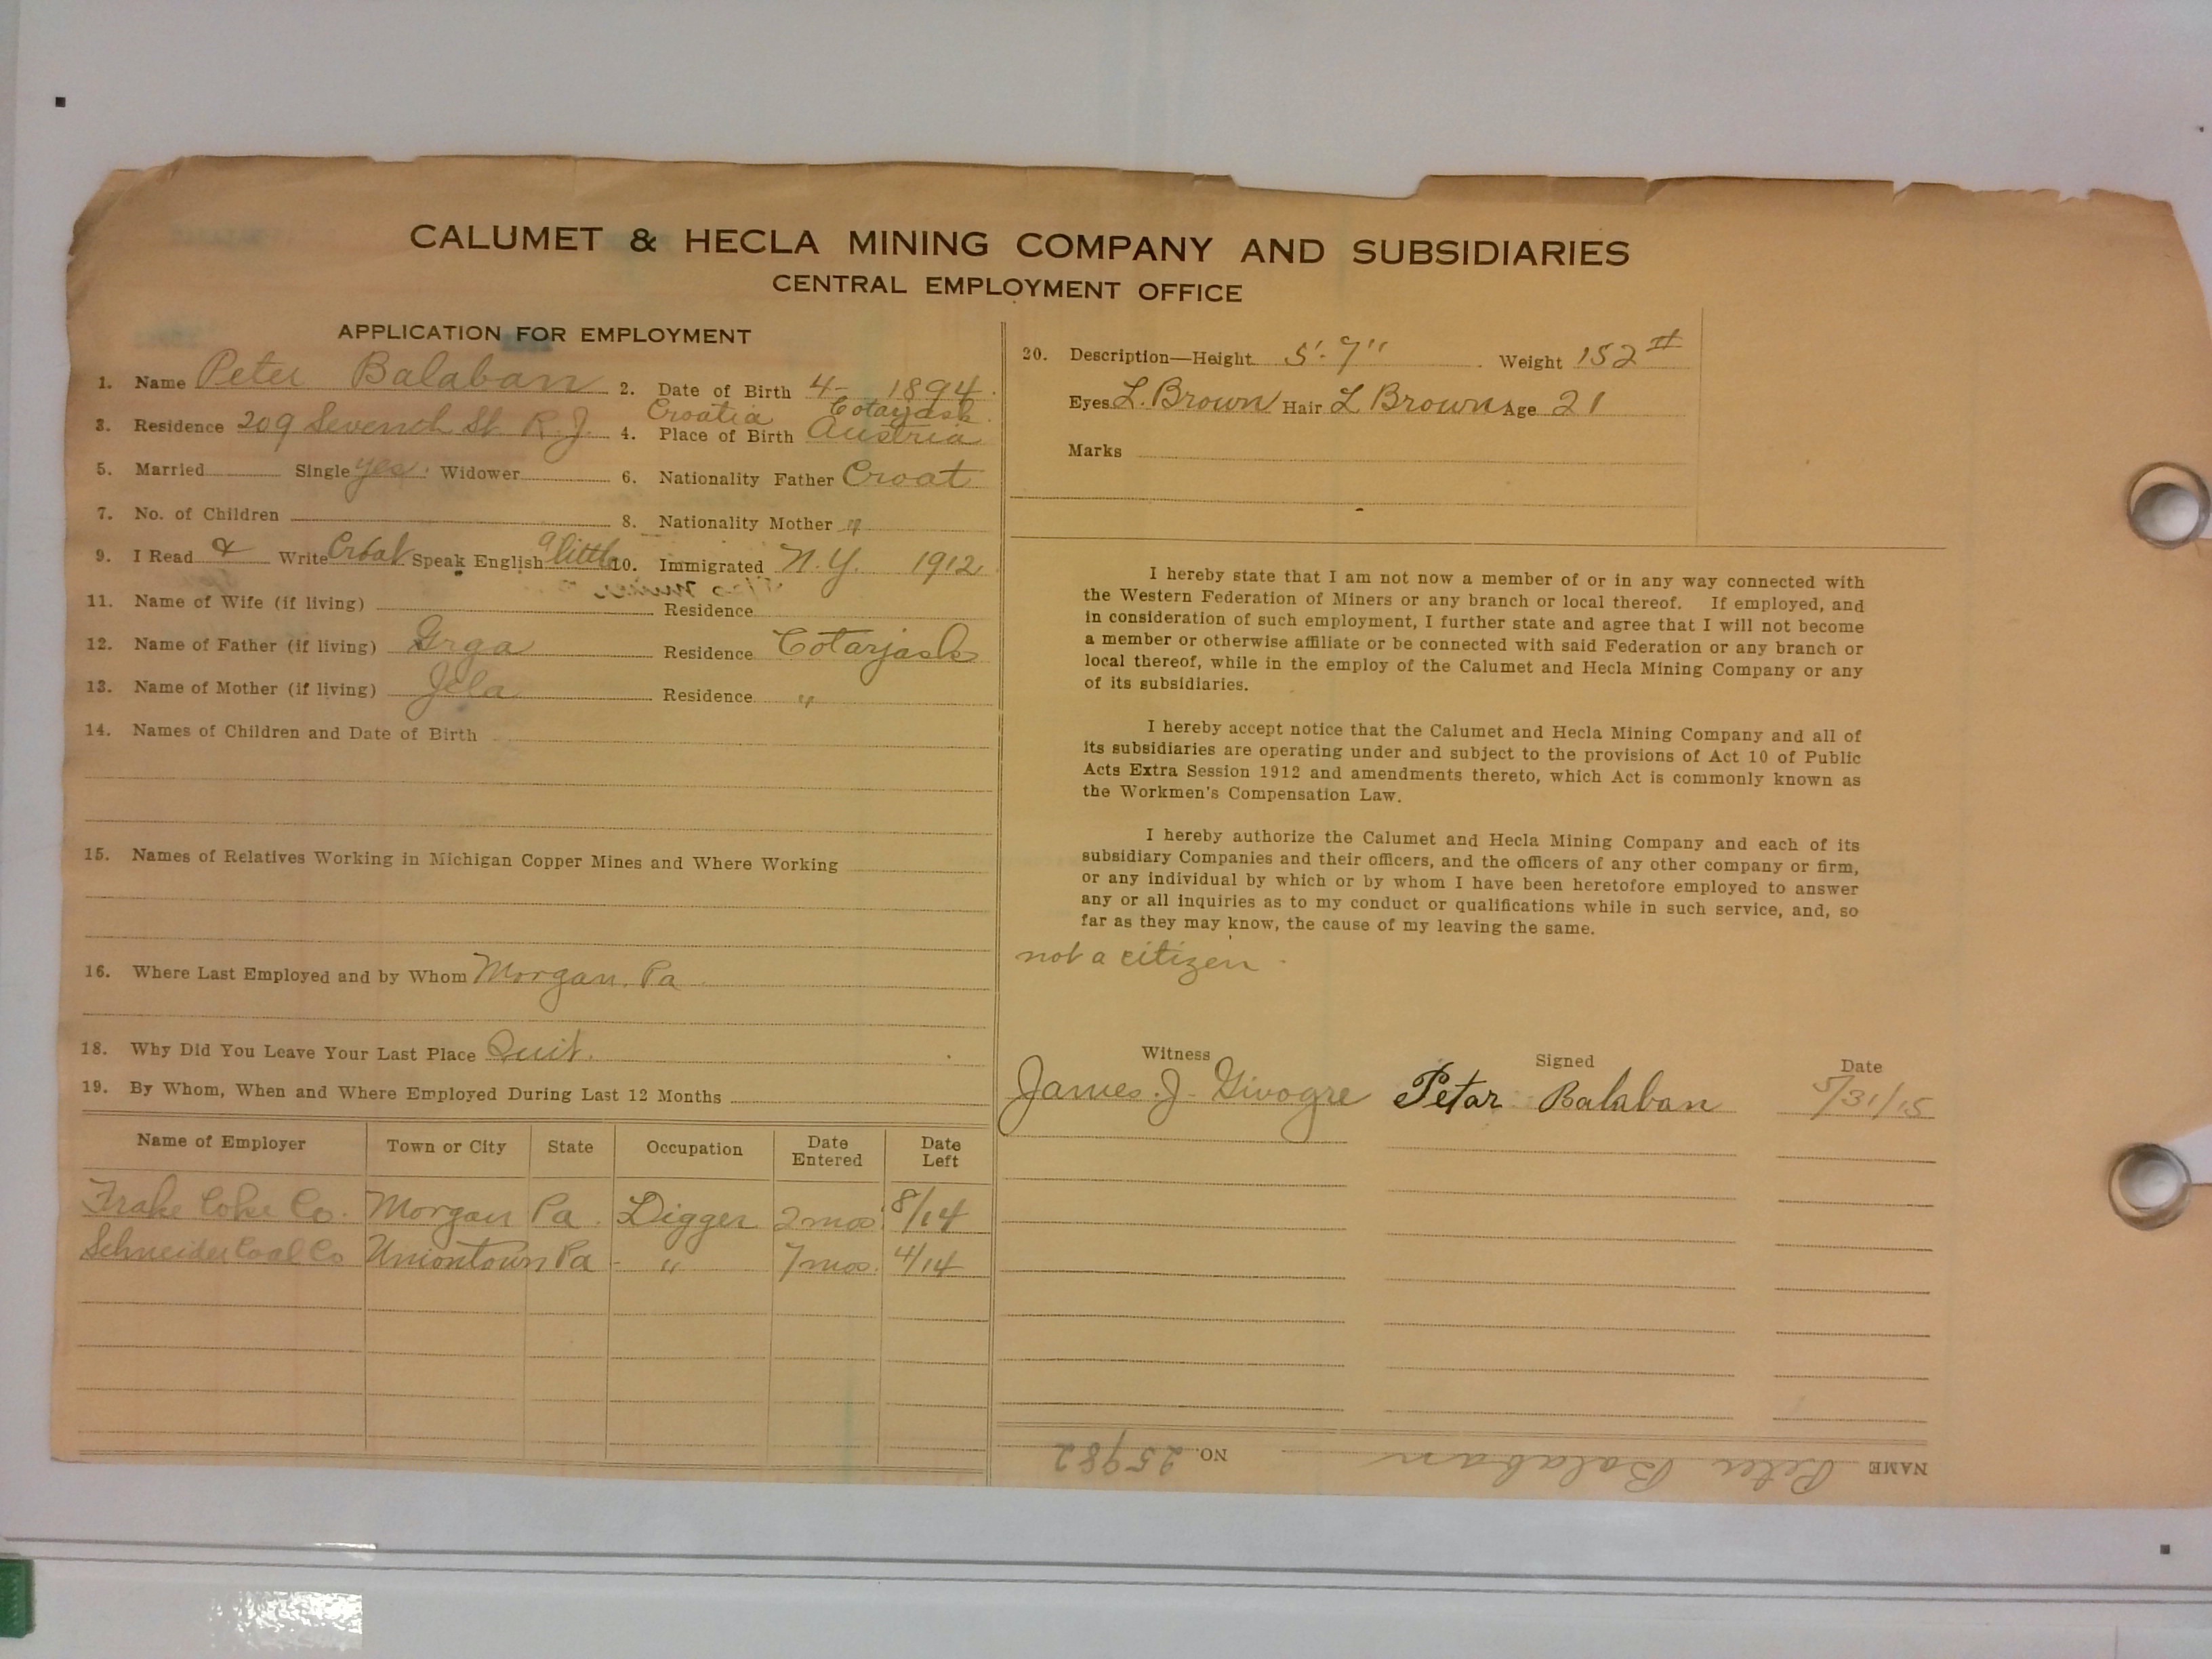 CALUMET & HECLA MINING COMPANY AND SUBSIDIARIES
CENTRAL EMPLOYMENT OFFICE
APPLICATION FOR EMPLOYMENT
1. Name Peter Balaban 2. Date of Birth 4- 1894
Croatia Cotarjask
3. Residence 209 Seventh St. R.J. 4. Place of Birth Austria
5. Married Single yes. Widower 6. Nationality Father Croat
7. No. of Children 8. Nationality Mother "
9. I Read & Write Croat Speak English a little 10. Immigrated N.Y. 1912
11. Name of Wife (if living) Residence
12. Name of Father (if living) Grga Residence Cotarjask
13. Name of Mother (if living) Jela Residence "
14. Names of Children and Date of Birth
15. Names of Relatives Working in Michigan Copper Mines and Where Working
16. Where Last Employed and by Whom Morgan. Pa
18. Why Did You Leave Your Last Place Quit.
19. By Whom, When and Where Employed During Last 12 Months
Name of Employer Town or City State Occupation Date Entered Date Left
Frake Coke Co. Morgan Pa. Digger 2 mos. 8/14
Schneider Coal Co Uniontown Pa " 7 mos. 4/14
20. Description—Height 5'-7" Weight 152 #
Eyes L. Brown Hair L Brown Age 21
Marks
I hereby state that I am not now a member of or in any way connected with
the Western Federation of Miners or any branch or local thereof. If employed, and
in consideration of such employment, I further state and agree that I will not become
a member or otherwise affiliate or be connected with said Federation or any branch or
local thereof, while in the employ of the Calumet and Hecla Mining Company or any
of its subsidiaries.
I hereby accept notice that the Calumet and Hecla Mining Company and all of
its subsidiaries are operating under and subject to the provisions of Act 10 of Public
Acts Extra Session 1912 and amendments thereto, which Act is commonly known as
the Workmen's Compensation Law.
I hereby authorize the Calumet and Hecla Mining Company and each of its
subsidiary Companies and their officers, and the officers of any other company or firm,
or any individual by which or by whom I have been heretofore employed to answer
any or all inquiries as to my conduct or qualifications while in such service, and, so
far as they may know, the cause of my leaving the same.
not a citizen.
Witness Signed Date
James. J. Givogre Petar Balaban 5/31/15
NAME Peter Balaban NO. 25982